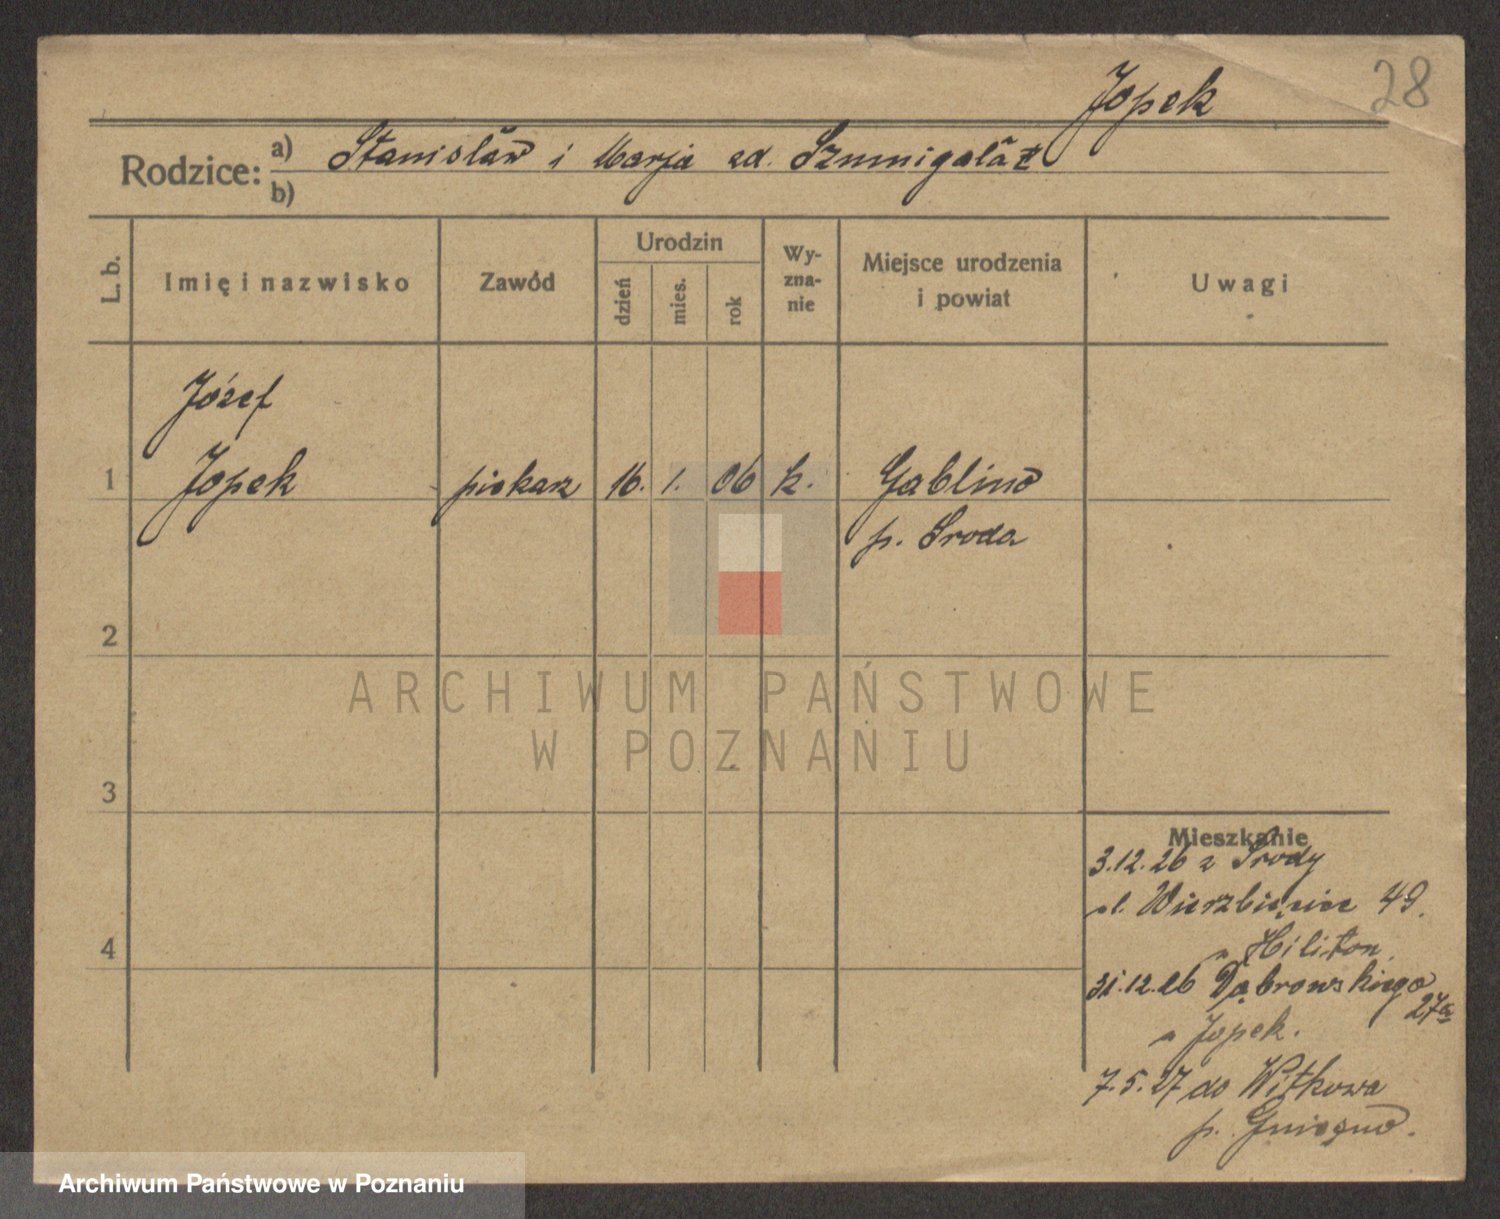 28
Jopek
Rodzice: a) Stanisław i Marja zd.
b)
L. b.
Imię i nazwisko
Zawód
Urodzin
dzień
mies.
rok
Wy-
zna-
nie
Miejsce urodzenia
i powiat
Uwagi
Józef
1 Jopek piekarz 16. 1. 06 k. Gablino
p. Sroda
2
3
4
Mieszkanie
3.12.26 z Środy
ul. Wierzbięcice 49.
u Hiliton
31.12.26 Dąbrowskiego
27a
u Jopek.
7.5.27 do Witkowa
p. Gniezno.
ARCHIWUM PAŃSTWOWE
W POZNANIU
Archiwum Państwowe w Poznaniu